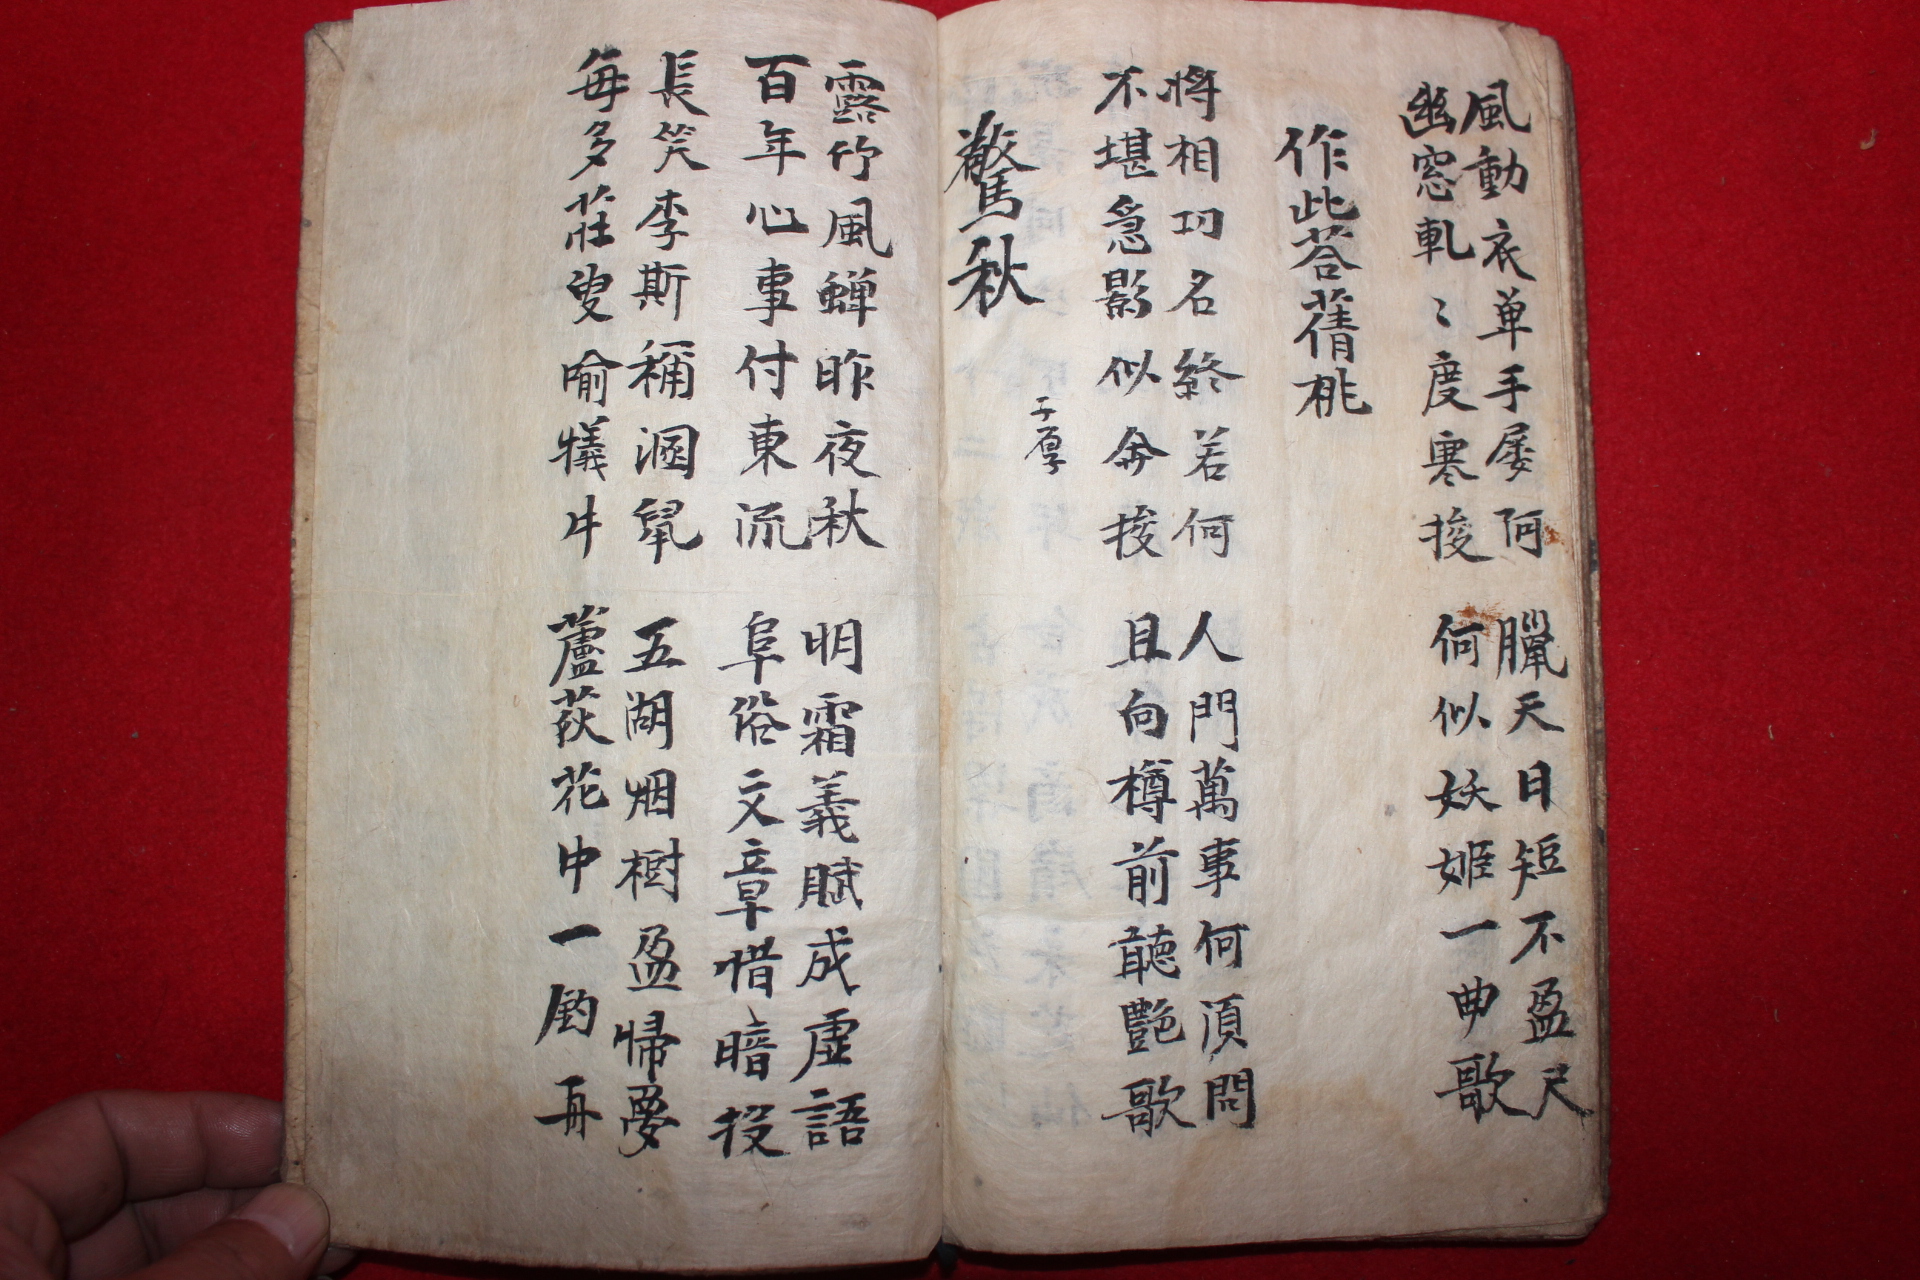 風動衣単手屡阿 臘天日短不盈尺
幽窓軋〻度寒梭 何似妖姬一曲歌
作此荅蒨桃
將相功名終若何 人門萬事何湏問
不堪急影似奔梭 且向樽前聽艶歌
驚秋 子厚
露竹風蟬昨夜秋 明霜義賦成虛語
百年心事付東流 阜俗文章惜暗投
長笑李斯稱溷鼠 五湖烟樹盈歸夢
每多莊叟喻犧牛 蘆荻花中一釣舟